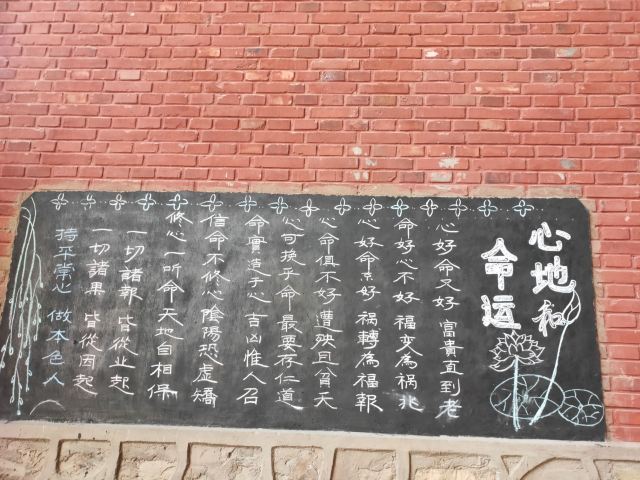 心地和
命运
心好命又好 富貴直到老
命好心不好 福变為祸兆
心好命不好 祸轉為福報
心命俱不好 遭殃且貧夭
心可换乎命 最要存仁道
命實造于心 吉凶惟人召
信命不修心 陰陽恐虛矯
修心一听命 天地自相保
一切諸報 皆從业起
一切諸果 皆從因起
持平常心 做本色人